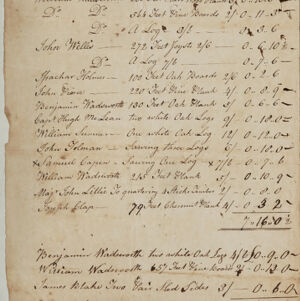 Do. 564 feet Pine Boards 2/ 0..11..3
Do. A Log 0..3..6
John Willis 272 feet Joysts 2/6 0..6..10
Do. A Log 7/6 0..7..6
Holmes 100 feet Oak Boards 2/6 0..2..6
John 220 feet Plank 4/ 0..8..9
Benjamin Wadsworth 130 feet Oak Plank 0..6..6
Capt. Hugh McLean two white Oak Logs 9/ 0..10..0
William Sumner One white Oak Log 12/ 0..12..0
John Holman Sawing three Logs 6/ 0..10..0
Samuel Capen Sawing One Log 7/6 0..7..6
William Wadsworth 215 feet Plank 5/ 0..10..9
Maj. John Lillie To quartering & 2/ 0..8..0
Clap 79 feet Chesnut Plank 4/ 0..3..2
7..16..0
Benjamin Wadsworth two white Oak Logs 4/6 0..9..0
William Wadsworth 657 feet Pine Boards 2/ 0..13..0
James Blake Two Pair Sled Sides 3/ 0..6..0